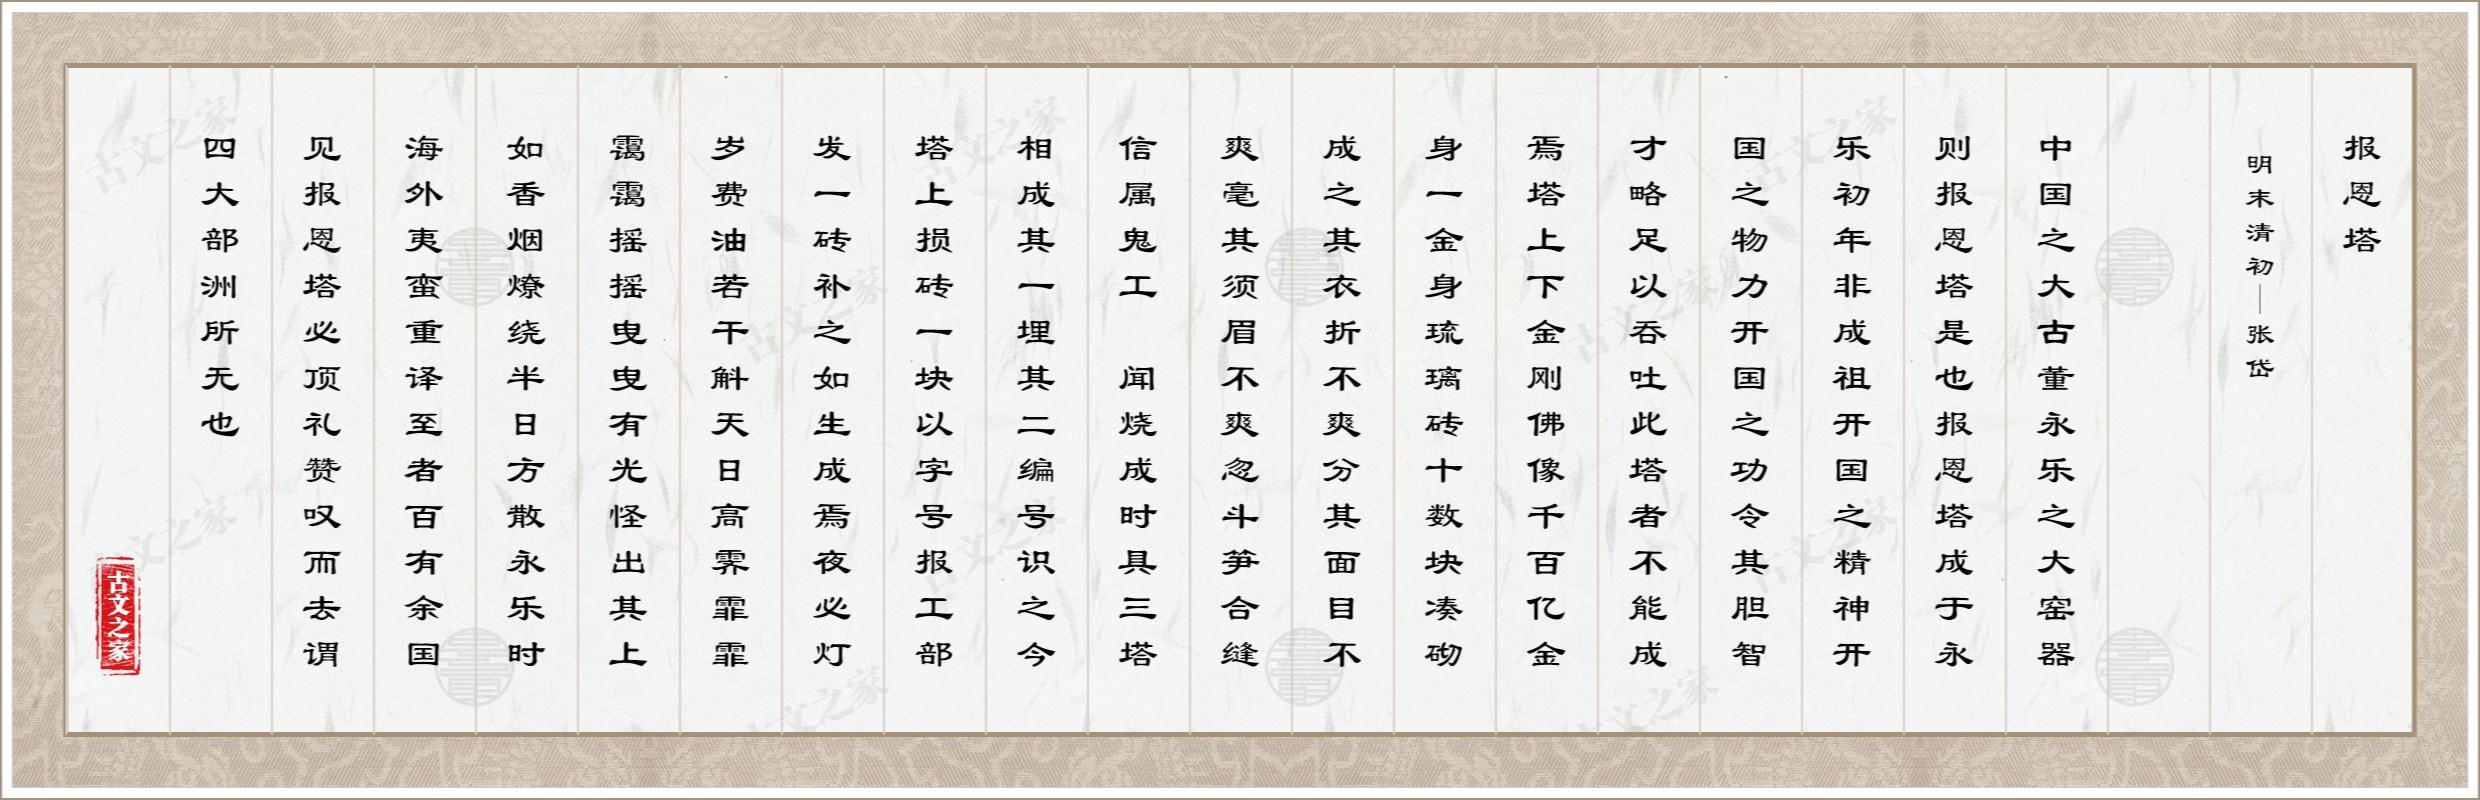 报恩塔
明末清初｜张岱
中国之大古董永乐之大窑器
则报恩塔是也报恩塔成于永
乐初年非成祖开国之精神开
国之物力开国之功令其胆智
才略足以吞吐此塔者不能成
焉塔上下金刚佛像千百亿金
身一金身琉璃砖十数块凑砌
成之其衣折不爽分其面目不
爽毫其须眉不爽忽斗笋合缝
信属鬼工　闻烧成时具三塔
相成其一埋其二编号识之今
塔上损砖一块以字号报工部
发一砖补之如生成焉夜必灯
岁费油若干斛天日高霁霏霏
霭霭摇摇曳曳有光怪出其上
如香烟燎绕半日方散永乐时
海外夷蛮重译至者百有余国
见报恩塔必顶礼赞叹而去谓
四大部洲所无也
古文之家